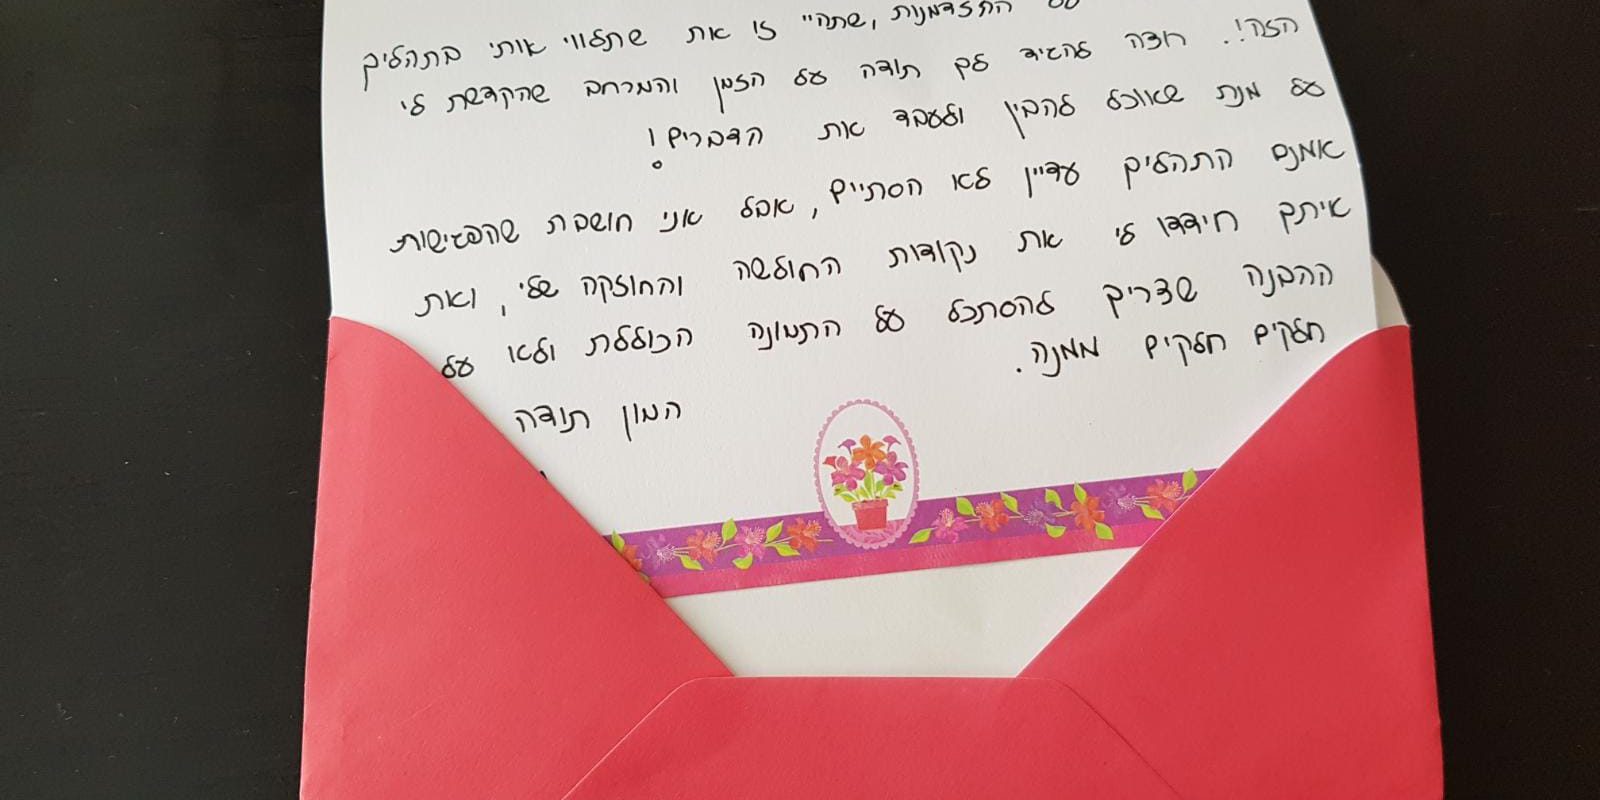 ההזדמנות, שתהיי זו את שתלווי אותי בתהליך
הזה!. רוצה להגיד לך תודה על הזמן והמרחב שהקדשת לי
על מנת שאוכל להבין ולעבד את הדברים!
אמנם התהליך עדיין לא הסתיים, אבל אני חושבת שהפגישות
איתך חידדו לי את נקודות החולשה והחוזקה שלי, ואת
ההבנה שצריך להסתכל על התמונה הכוללת ולא על
חלקים חלקים ממנה.
המון תודה